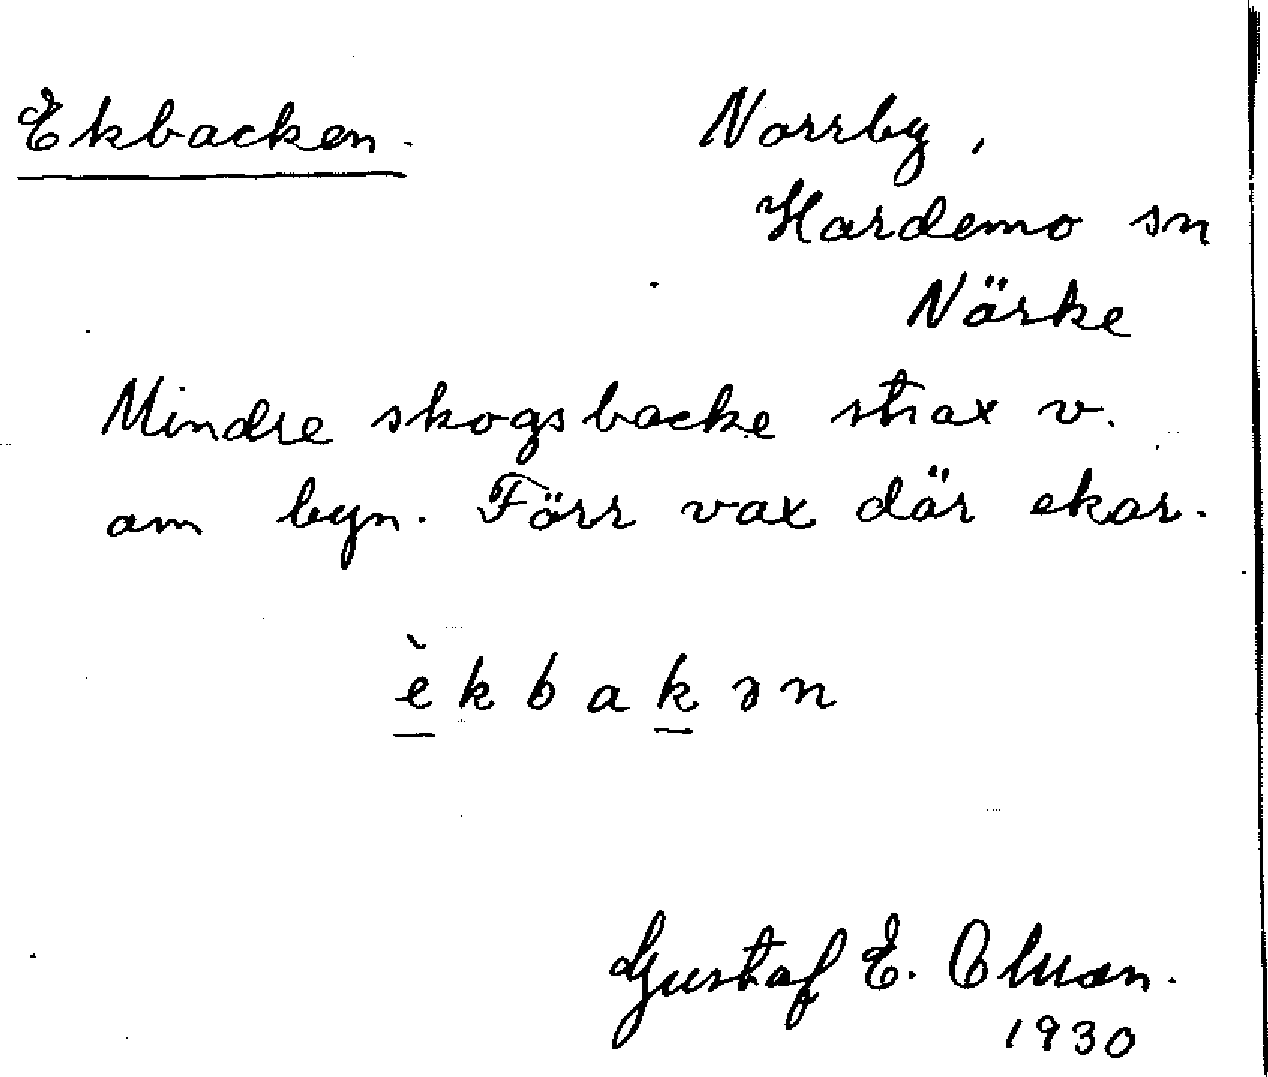 Ekbacken.
Norrby,
Hardemo sn
Närke
Mindre skogsbacke strax v.
om byn. Förr vax där ekar.
èkbakən
Gustaf E. Olsson.
1930